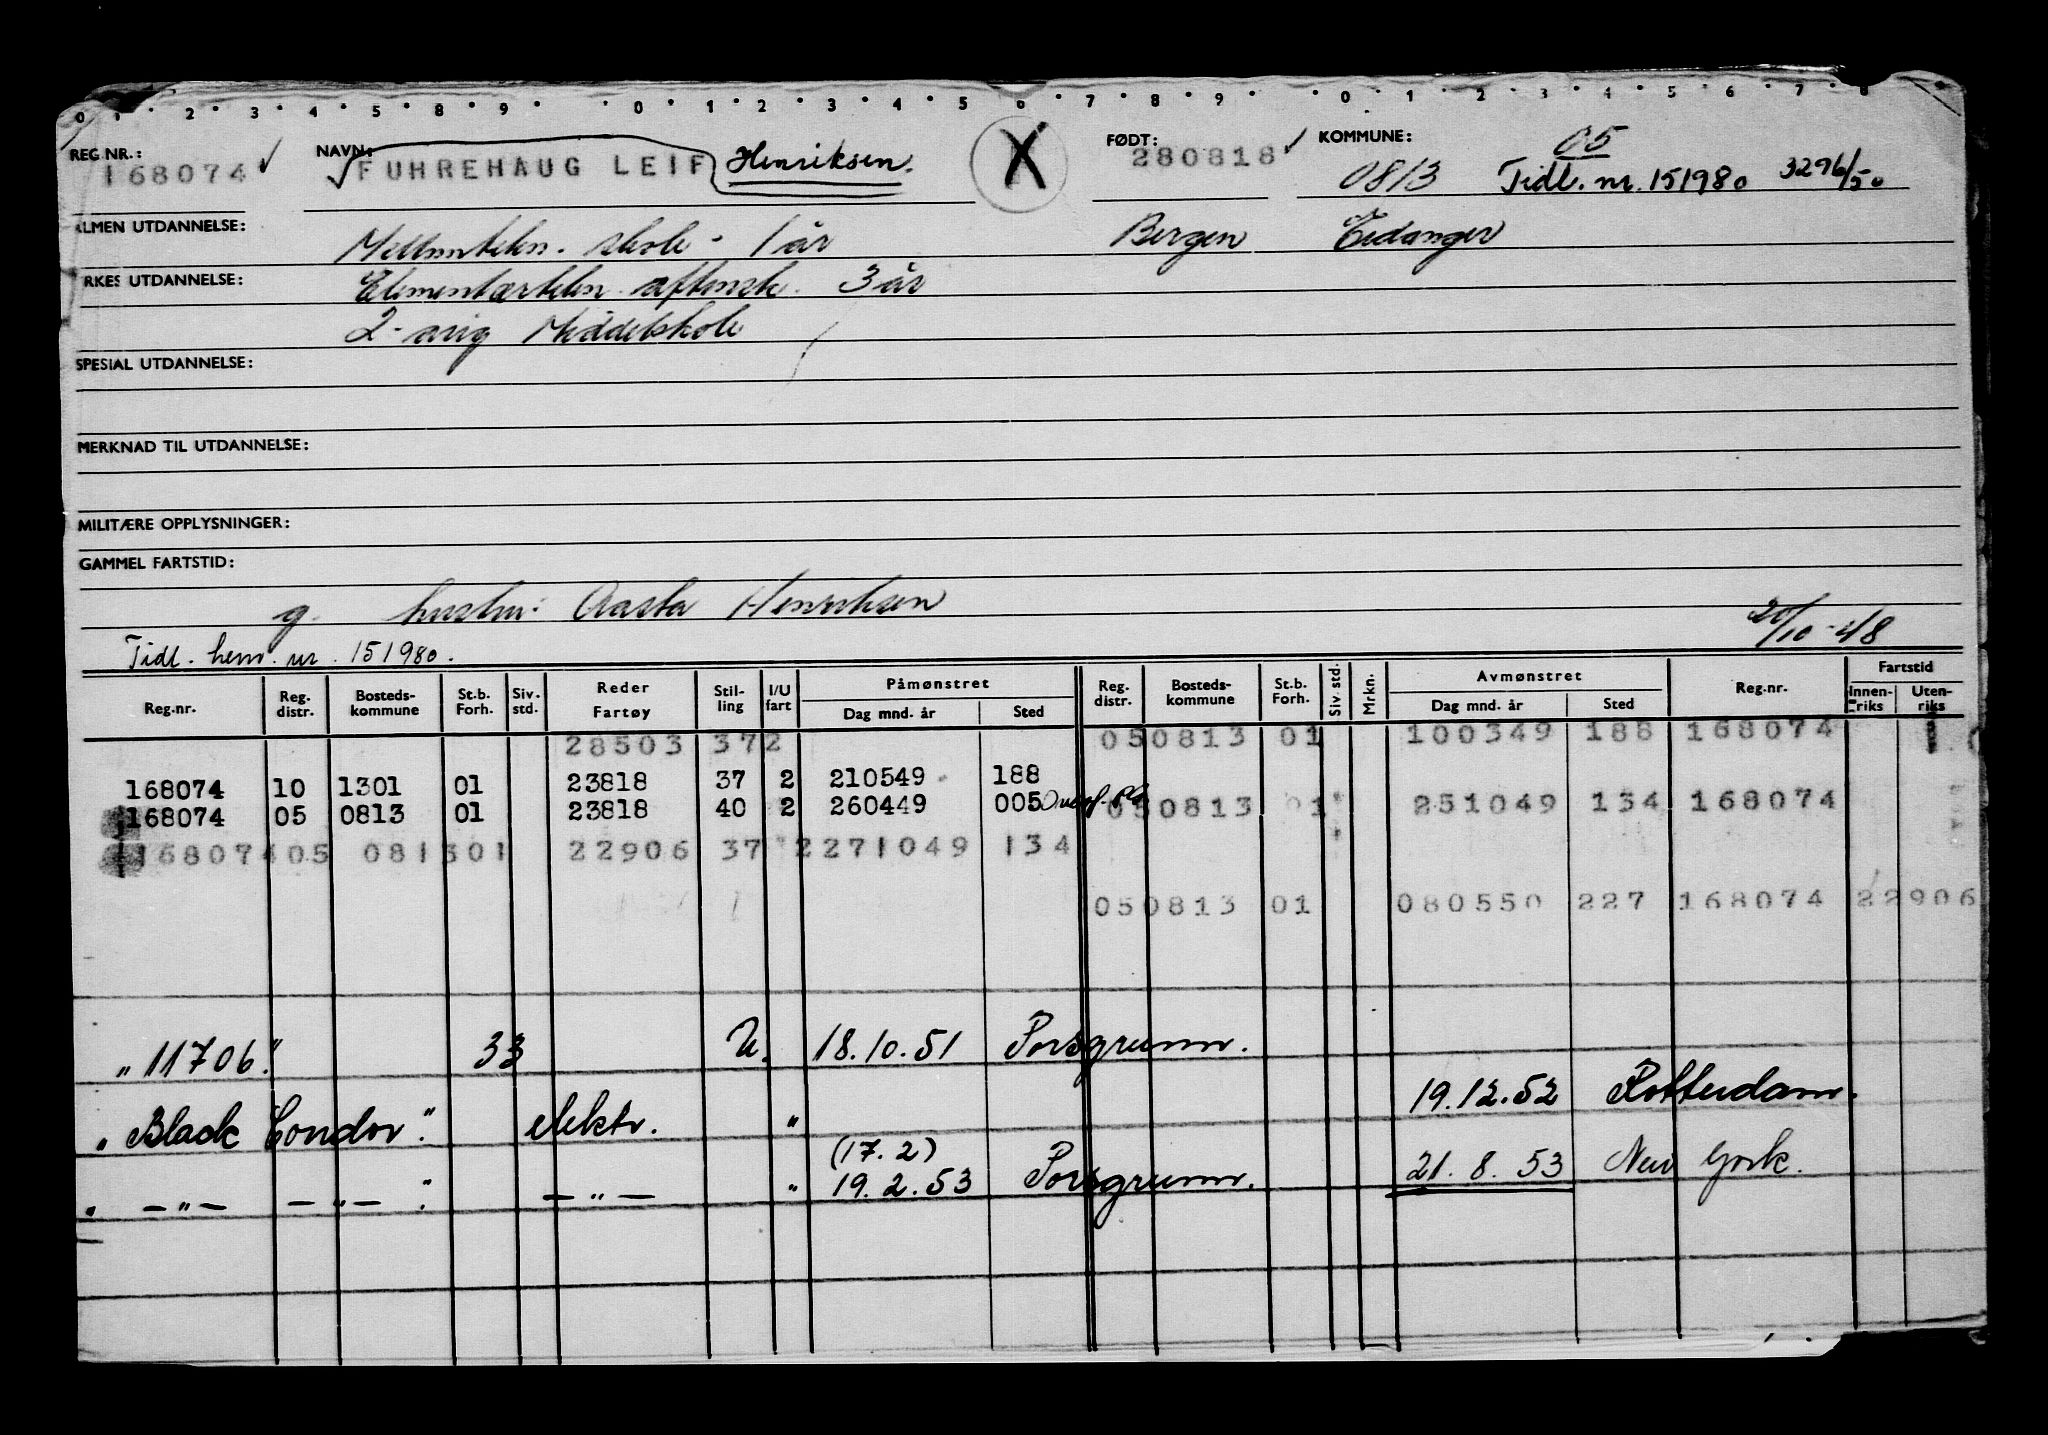 0 1 2 3 4 5 6 7 8 9 0 1 2 3 4 5 6 7 8 9 0 1 2 3 4 5 6 7 8
REG NR.: NAVN: FØDT: KOMMUNE: 05
168074 ✓ FUHREHAUG LEIF Henriksen. X 280818 ✓ 0813 Tidl. nr. 151980 3296/50
ALMEN UTDANNELSE: skole - 1 år Bergen Eidanger
YRKES UTDANNELSE: Elementærtekn. aftensk. 3 år
2-årig Middelskole
SPESIAL UTDANNELSE:
MERKNAD TIL UTDANNELSE:
MILITÆRE OPPLYSNINGER:
GAMMEL FARTSTID:
g. hustru: Aasta Henriksen 20/10-48
Tidl. hem. nr. 151980.
Reg.nr. Reg. distr. Bosteds-kommune St.b. Forh. Siv. std. Reder Fartøy Stil-ling I/U fart Påmønstret Dag mnd. år Sted Reg. distr. Bosteds-kommune St.b. Forh. Siv std. Mrkn. Avmønstret Dag mnd. år Sted Reg.nr. Fartstid Innen-riks Uten-riks
28503 372 050813 01 100349 188 168074
168074 10 1301 01 23818 37 2 210549 188
168074 05 0813 01 23818 40 2 260449 005 050813 01 251049 134 168074
168074 05 081301 22906 37 2271049 134
050813 01 080550 227 168074 22906
"11706" 33 U. 18.10.51 Porsgrunn.
"Black Condor." elektr. " 19.12.52 Rotterdam.
(17.2)
" —"— —"— ." —"— " 19.2.53 Porsgrunn. 21.8.53 New York.